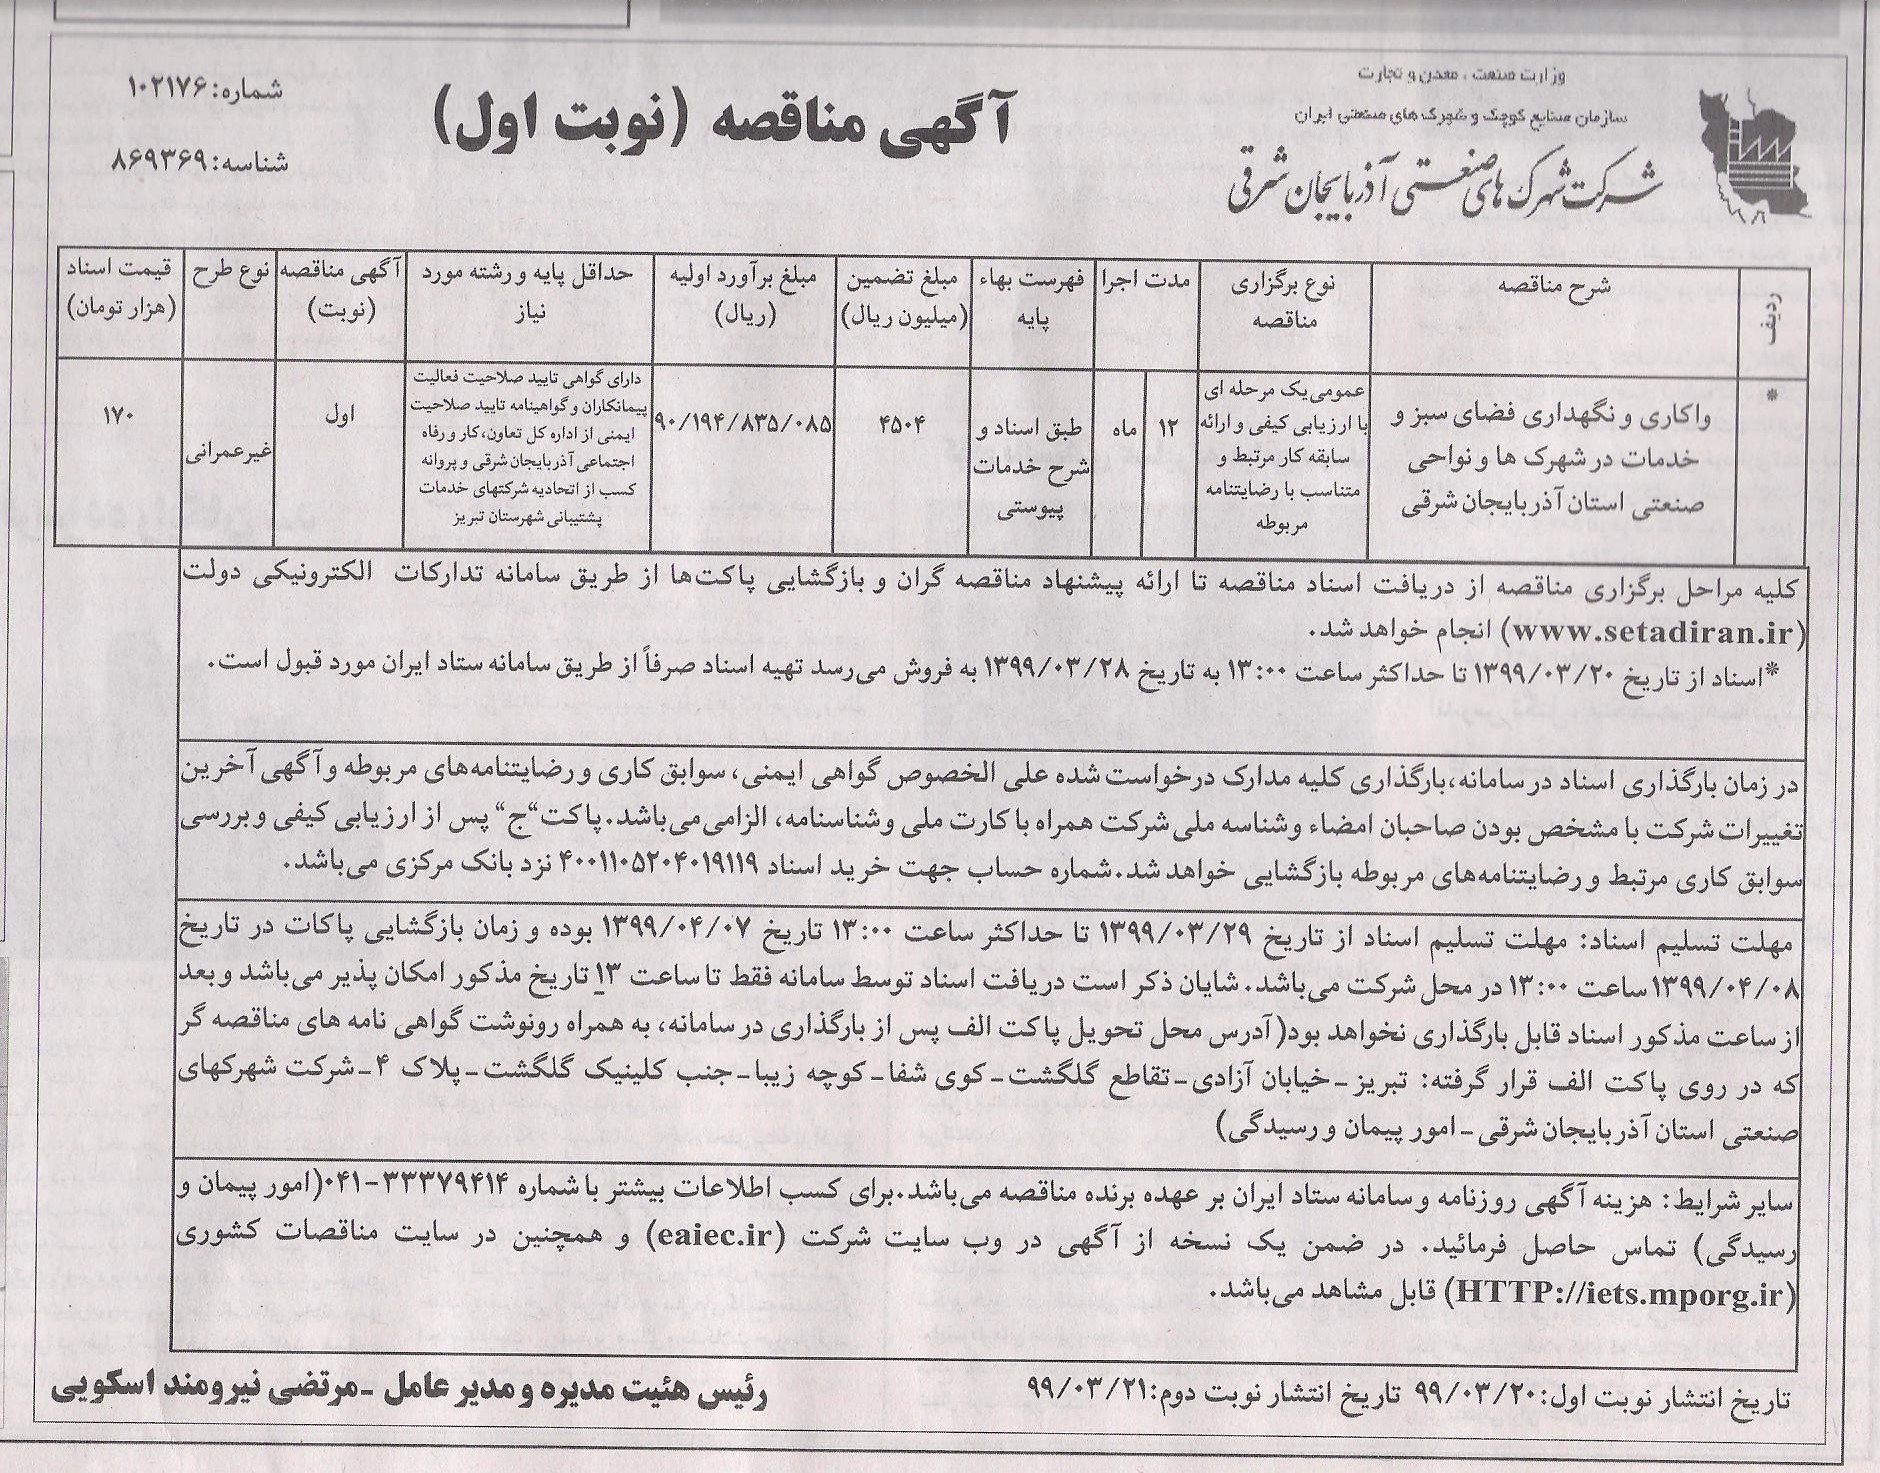 وزارت صنعت ، معدن و تجارت
سازمان صنایع کوچک و شهرک های صنعتی ایران
شرکت شهرک های صنعتی آذربایجان شرقی
آگهی مناقصه (نوبت اول)
شماره: ۱۰۲۱۷۶
شناسه: ۸۶۹۳۶۹
ردیف
شرح مناقصه
نوع برگزاری
مناقصه
مدت اجرا
فهرست بهاء
پایه
مبلغ تضمین
(میلیون ریال)
مبلغ برآورد اولیه
(ریال)
حداقل پایه و رشته مورد
نیاز
آگهی مناقصه
(نوبت)
نوع طرح
قیمت اسناد
(هزار تومان)
*
واکاری و نگهداری فضای سبز و
خدمات در شهرک ها و نواحی
صنعتی استان آذربایجان شرقی
عمومی یک مرحله ای
با ارزیابی کیفی و ارائه
سابقه کار مرتبط و
متناسب با رضایتنامه
مربوطه
۱۲
ماه
طبق اسناد و
شرح خدمات
پیوستی
۴۵۰۴
۹۰/۱۹۴/۸۳۵/۰۸۵
دارای گواهی تایید صلاحیت فعالیت
پیمانکاران و گواهینامه تایید صلاحیت
ایمنی از اداره کل تعاون، کار و رفاه
اجتماعی آذربایجان شرقی و پروانه
کسب از اتحادیه شرکتهای خدمات
پشتیبانی شهرستان تبریز
اول
غیرعمرانی
۱۷۰
کلیه مراحل برگزاری مناقصه از دریافت اسناد مناقصه تا ارائه پیشنهاد مناقصه گران و بازگشایی پاکت‌ها از طریق سامانه تدارکات الکترونیکی دولت
(www.setadiran.ir) انجام خواهد شد.
*اسناد از تاریخ ۱۳۹۹/۰۳/۲۰ تا حداکثر ساعت ۱۳:۰۰ به تاریخ ۱۳۹۹/۰۳/۲۸ به فروش می‌رسد تهیه اسناد صرفاً از طریق سامانه ستاد ایران مورد قبول است.
در زمان بارگذاری اسناد در سامانه، بارگذاری کلیه مدارک درخواست شده علی الخصوص گواهی ایمنی، سوابق کاری و رضایتنامه‌های مربوطه و آگهی آخرین
تغییرات شرکت با مشخص بودن صاحبان امضاء و شناسه ملی شرکت همراه با کارت ملی و شناسنامه، الزامی می‌باشد. پاکت "ج" پس از ارزیابی کیفی و بررسی
سوابق کاری مرتبط و رضایتنامه‌های مربوطه بازگشایی خواهد شد. شماره حساب جهت خرید اسناد ۴۰۰۱۱۰۵۲۰۴۰۱۹۱۱۹ نزد بانک مرکزی می‌باشد.
مهلت تسلیم اسناد: مهلت تسلیم اسناد از تاریخ ۱۳۹۹/۰۳/۲۹ تا حداکثر ساعت ۱۳:۰۰ تاریخ ۱۳۹۹/۰۴/۰۷ بوده و زمان بازگشایی پاکات در تاریخ
۱۳۹۹/۰۴/۰۸ ساعت ۱۳:۰۰ در محل شرکت می‌باشد. شایان ذکر است دریافت اسناد توسط سامانه فقط تا ساعت ۱۳ تاریخ مذکور امکان پذیر می‌باشد و بعد
از ساعت مذکور اسناد قابل بارگذاری نخواهد بود( آدرس محل تحویل پاکت الف پس از بارگذاری در سامانه، به همراه رونوشت گواهی نامه های مناقصه گر
که در روی پاکت الف قرار گرفته: تبریز ـ خیابان آزادی ـ تقاطع گلگشت ـ کوی شفا ـ کوچه زیبا ـ جنب کلینیک گلگشت ـ پلاک ۴ ـ شرکت شهرکهای
صنعتی استان آذربایجان شرقی ـ امور پیمان و رسیدگی)
سایر شرایط: هزینه آگهی روزنامه و سامانه ستاد ایران بر عهده برنده مناقصه می‌باشد. برای کسب اطلاعات بیشتر با شماره ۳۳۳۷۹۴۱۴-۰۴۱ (امور پیمان و
رسیدگی) تماس حاصل فرمائید. در ضمن یک نسخه از آگهی در وب سایت شرکت (eaiec.ir) و همچنین در سایت مناقصات کشوری
(HTTP://iets.mporg.ir) قابل مشاهد می‌باشد.
تاریخ انتشار نوبت اول: ۹۹/۰۳/۲۰ تاریخ انتشار نوبت دوم: ۹۹/۰۳/۲۱
رئیس هئیت مدیره و مدیر عامل - مرتضی نیرومند اسکویی